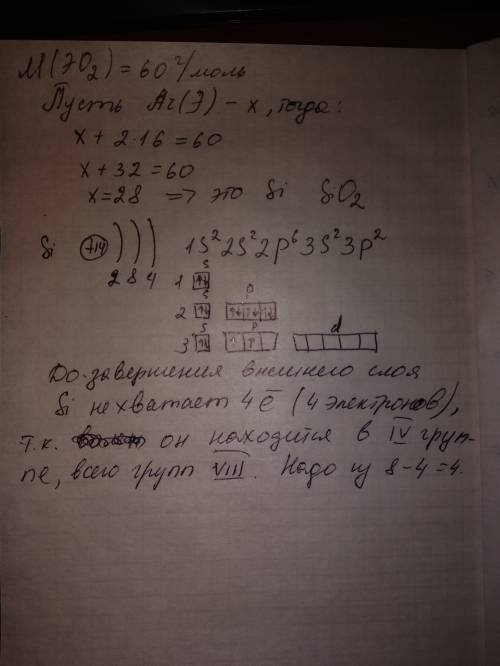 M(ЭO₂) = 60 г/моль
Пусть Ar(Э) - x, тогда:
x + 2·16 = 60
x + 32 = 60
x = 28 => это Si SiO₂
Si +14 ) ) ) 1S² 2S² 2p⁶ 3S² 3p²
2 8 4
s
1 ↑↓
s p
2 ↑↓ ↑↓ ↑↓ ↑↓
s p d
3 ↑↓ ↑ ↑
До завершения внешнего слоя
Si не хватает 4ē (4 электронов),
т.к. он находится в IV груп-
пе, всего групп VIII. Надо из 8-4=4.